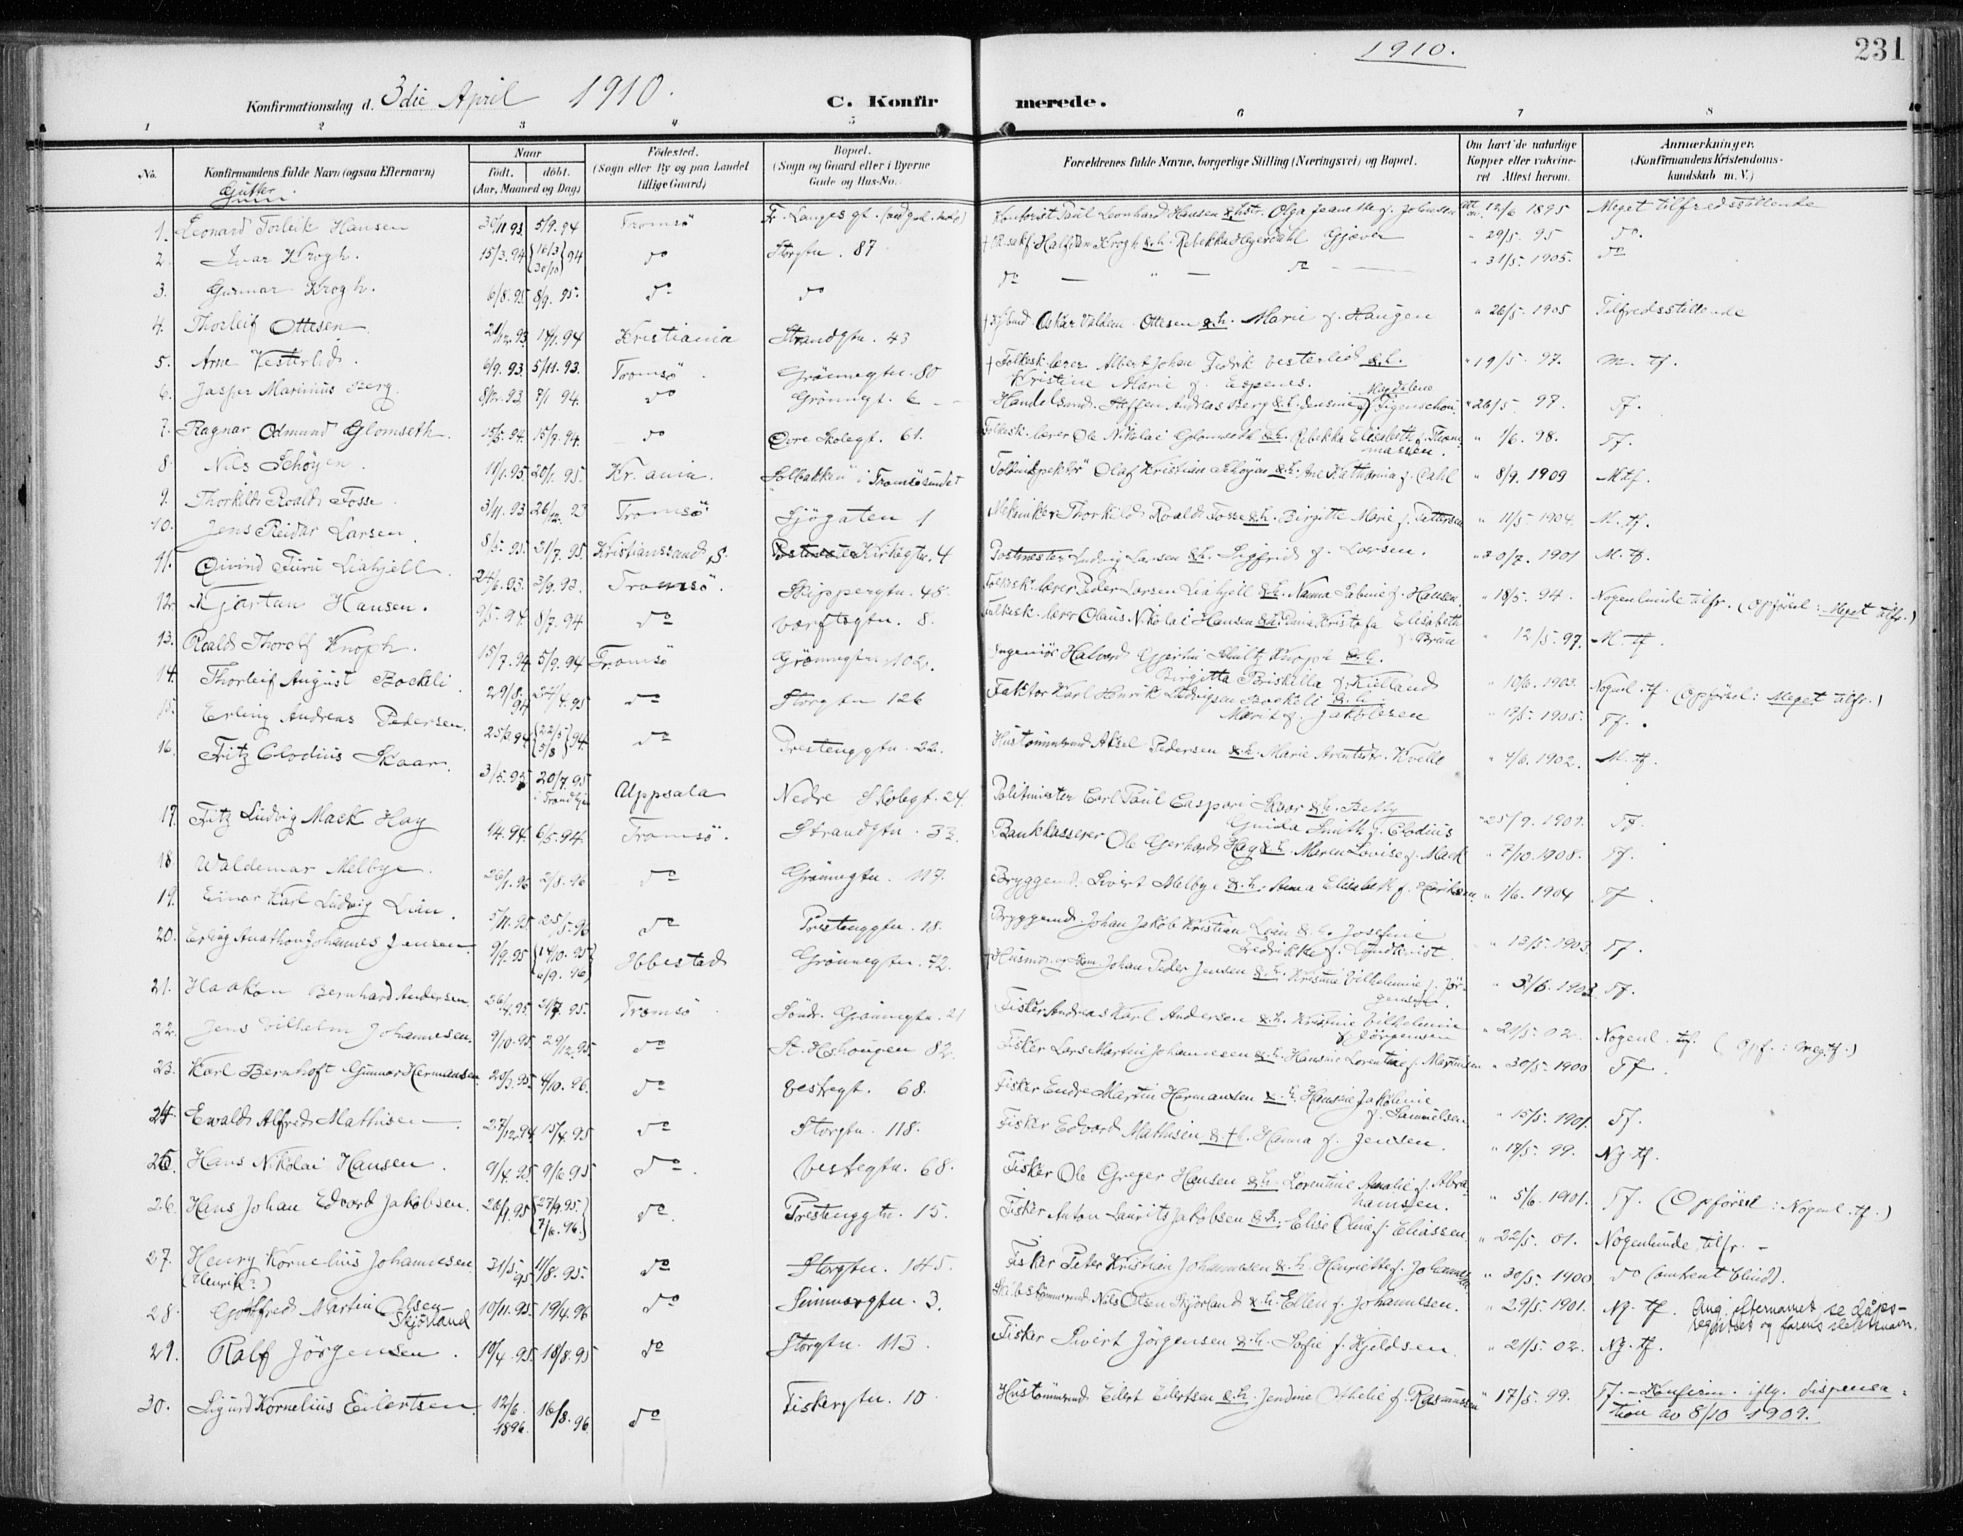 1910.
231
Konfirmationsdag d. 3die April 1910.
C. Konfirmerede.
1 2 3 4 5 6 7 8
No. Konfirmandens fulde Navn (ogsaa Efternavn) Naar født. døbt. (Aar, Maaned og Dag) Fødested. (Sogn eller By og paa Landet tillige Gaard) Bopæl. (Sogn og Gaard eller i Byerne Gade og Hus-No. Forældrenes fulde Navne, borgerlige Stilling (Næringsvei) og Bopæl. Om havt de naturlige Kopper eller vaccineret. Attest herom. Anmærkninger. (Konfirmandens Kristendomskundskab m. V.)
Gutter
1. Leonard Torleik Hansen 5/9.94 Tromsö Fr. Langes gt. Kontorist Paul Leonhard Hansen & hstr. Olga Jeanette f. Johnsen 12/6 1895 Meget tilfredsstillende
2. Ivar Krogh. 15/3.94 do Storgtn. 87 Halfdan Krogh & h. Rebekka Hyerdahl Gjæver " 29/5. 95 do.
3. Gunnar Krogh. 6/8.95 8/9. 95. do do do " do " 31/5. 1905. do
4. Thorleif Ottesen 21/12.93 17/1.94 Kristiania Strandgtn. 43 Oskar Valdem. Ottesen & h. Marie f. Haugen " 26/5. 1905 Tilfredsstillende
5. Arne Vesterlid. 6/9. 93. 5/11. 93. Tromsö. Grönnegtn. 80 † Folkesk. lærer Albert Johan Fedrik Vesterlid & h. Kristine Marie f. Espenes. " 19/5. 97. M. tf.
6. Jasper Marinius Berg. 8/12.93 7/1 94. do Grönnegt. 6 Handelsmd. Steffen Andreas Berg & h. Jensine Magdalene f. Figenschou " 26/5 97. Tf.
7. Ragnar Odmund Glomseth. 15/5.94. 15/9.94 do Övre Skolegt. 61. Folkesk. lærer Ole Nikolai Glomseth & h. Rebekka Elisabeth f. Thomassen. " 1/6. 98. Tf.
8. Nils Schöyen. 11/1.95 20/1. 95 Kr.ania. Solbakken i Tromsösundet Toldinspektør Olaf Kristian Schöyen & h. Ane Katharina f. Dahl " 8/9. 1909 Mtf.
9. Thorkild Roald Fosse. 3/11. 93 26/12. 93 Tromsö Sjögaten 1 Mekaniker Thorkild Roald Fosse & h. Birgitte Marie f. Pettersen " 11/5. 1904. M. tf.
10. Jens Reidar Larsen. 8/5. 95. 21/7. 95 Kristianssand S. Kirkegtn. 4 Postmester Ludvig Larsen & h. Sigfrid f. Larsen. 20/7. 1901 M. tf.
11. Öivind Furu Liahjell. 24/6.93. 3/9. 93. Tromsö. Skippergtn. 48. Folkesk. lærer Peder Larsen Liahjell & h. Nanna Salmie f. Hansen. " 18/5. 94. Nogenlunde tilfr. (Opförsel: Meget tilfr.)
12. Kjartan Hansen. 9/5. 94. 8/7. 94 do Værftsgtn. 8. Folkesk. lærer Olaus Nikolai Hansen & h. Dina Kristofa Elisabeth f. Bruun " 12/5. 97. M. tf.
13. Roald Thorolf Knoph. 15/7. 94. 5/9. 94 Tromsö Grönnegtn. 102. Ingeniör Halvard Gjertin Shultz Knoph & h. Birgitta Priskilla f. Kielland " 10/6. 1903. Nogenl. tf. (Opförsel: Meget tilfr.)
14. Thorleif August Bockeli. 29/8. 94 24/4. 95 do Storgtn 126 Faktor Karl Henrik Ludvigsen Bockeli & h. Marit f. Jakobsen " 13/5. 1905. Tf.
15. Erling Andreas Pedersen. 25/3 94 {22/5 5/8} 94 do Prestenggtn. 22. Hustömmermd Aksel Pedersen & h. Marie Arentstr. Kvelle " 4/6. 1902. M. tf.
16. Fritz Clodius Skaar. 3/5. 95 20/7. 95 i Trondhjem Uppsala Nedre Skolegt. 24. Politimester Carl Paul Caspari Skaar & h. Betty Guida Smith f. Clodius " 25/9. 1909. Tf
17. Fritz Ludvig Mack Hay 1/4. 94. 6/5. 94. Tromsö. Strandgtn. 33. Bankkasserer Ole Gerhard Hay & h. Maren Lovise f. Mack " 7/10. 1908. Tf.
18 Waldemar Melbye. 26/1. 96 2/8. 96 do Grönnegtn. 117. Bryggend. Sivert Melbye & h. Anna Elisabeth f. Eriksen " 1/6. 1904 Tf.
19. Einar Karl Ludvig Lian. 5/11. 95. 25/5. 96 do Prestenggtn. 18. Bryggemd. Johan Jakob Kristian Lian & h. Josefine Fredrikke f. Lundkvist. " 13/5. 1903. Tf.
20. Erling Anathon Johannes Jensen 9/9. 95 Ibbestad Grönnegtn. 72. Johan Peder Jensen & h. Kristine Vilhelmine f. Jörgensen. " 3/6. 1902 Tf.
21. Haakon Bernhard Andersen. 26/4. 95. 21/7. 95. Tromsö. Söndr. Grönnegtn. 21 Fisker Andreas Karl Andersen & h. Kristine Vilhelmine f. Jörgensen " 21/5. 02. Nogenl. tf. (Opf.: Meg. tf.)
22. Jens Vilhelm Johannesen. 9/10. 95. 29/12. 95 do St. Hshaugen 82. Fisker Lars Martin Johannesen & h. Hansine Lorentine f. Martinsen " 30/5. 1900 Tf.
23. Karl Bernhoft Gunnar Hermansen 4/10. 96. do Vestregt. 68. Fisker Endre Martin Hermansen & h. Hansine Jakobine f. Samuelsen. " 15/5. 1901. Tf.
24. Ewald Alfred Mathisen. 27/12.94 15/4. 95 do Storgtn. 118. Fisker Edvard Mathisen & h. Hanna f. Jensen. " 17/5. 99. Ng. tf.
25. Hans Nikolai Hansen. 9/4. 95. 9/6. 95 do. Vestregtn. 68. Fisker Ole Greger Hansen & h. Lorentine Amalie f. Abrahamsen. " 5/6. 1901. Tf. (Opförsel: Nogenl. tf.)
26. Hans Johan Edvard Jakobsen. {27/9. 95. 7/6. 96.} do. Prestenggtn. 15. Fisker Anton Laurits Jakobsen & h. Elise Oline f. Eliassen " 22/5. 01. Nogenlunde tilfr. -
27. Henry Kornelius Johannesen (Henrik?) 31/5. 95 11/8. 95. do Storgtn. 145. Fisker Peter Kristian Johannesen & h. Henriette f. Johannesen " 30/5. 1900 do (omtrent blind).
28. Gotfred Martin Olsen Skjörland 10/11. 95 19/4. 96 do Skinnergtn. 3. Nils Olsen Skjörland & h. Ellen f. Johannesen. " 29/5. 1901. Ng. tf. Ang. efternavnet se dåpsregistret og farens slektsnavn.
29. Ralf Jörgensen. 10/4. 95. 18/8. 95 do Storgtn. 113. Fisker Sivert Jörgensen & h. Sofie f. Kjeldsen. " 21/5. 02. Ng. tf.
30. Sigurd Kornelius Eilertsen. 12/6. 1896. 16/8. 96. do Fiskergtn. 10 Hustömmermd Eilert Eilertsen & h. Jendine Othelie f. Rasmussen " 17/5. 99. Tf. - Konfirm. iflg. Dispensation av 8/10 1909.